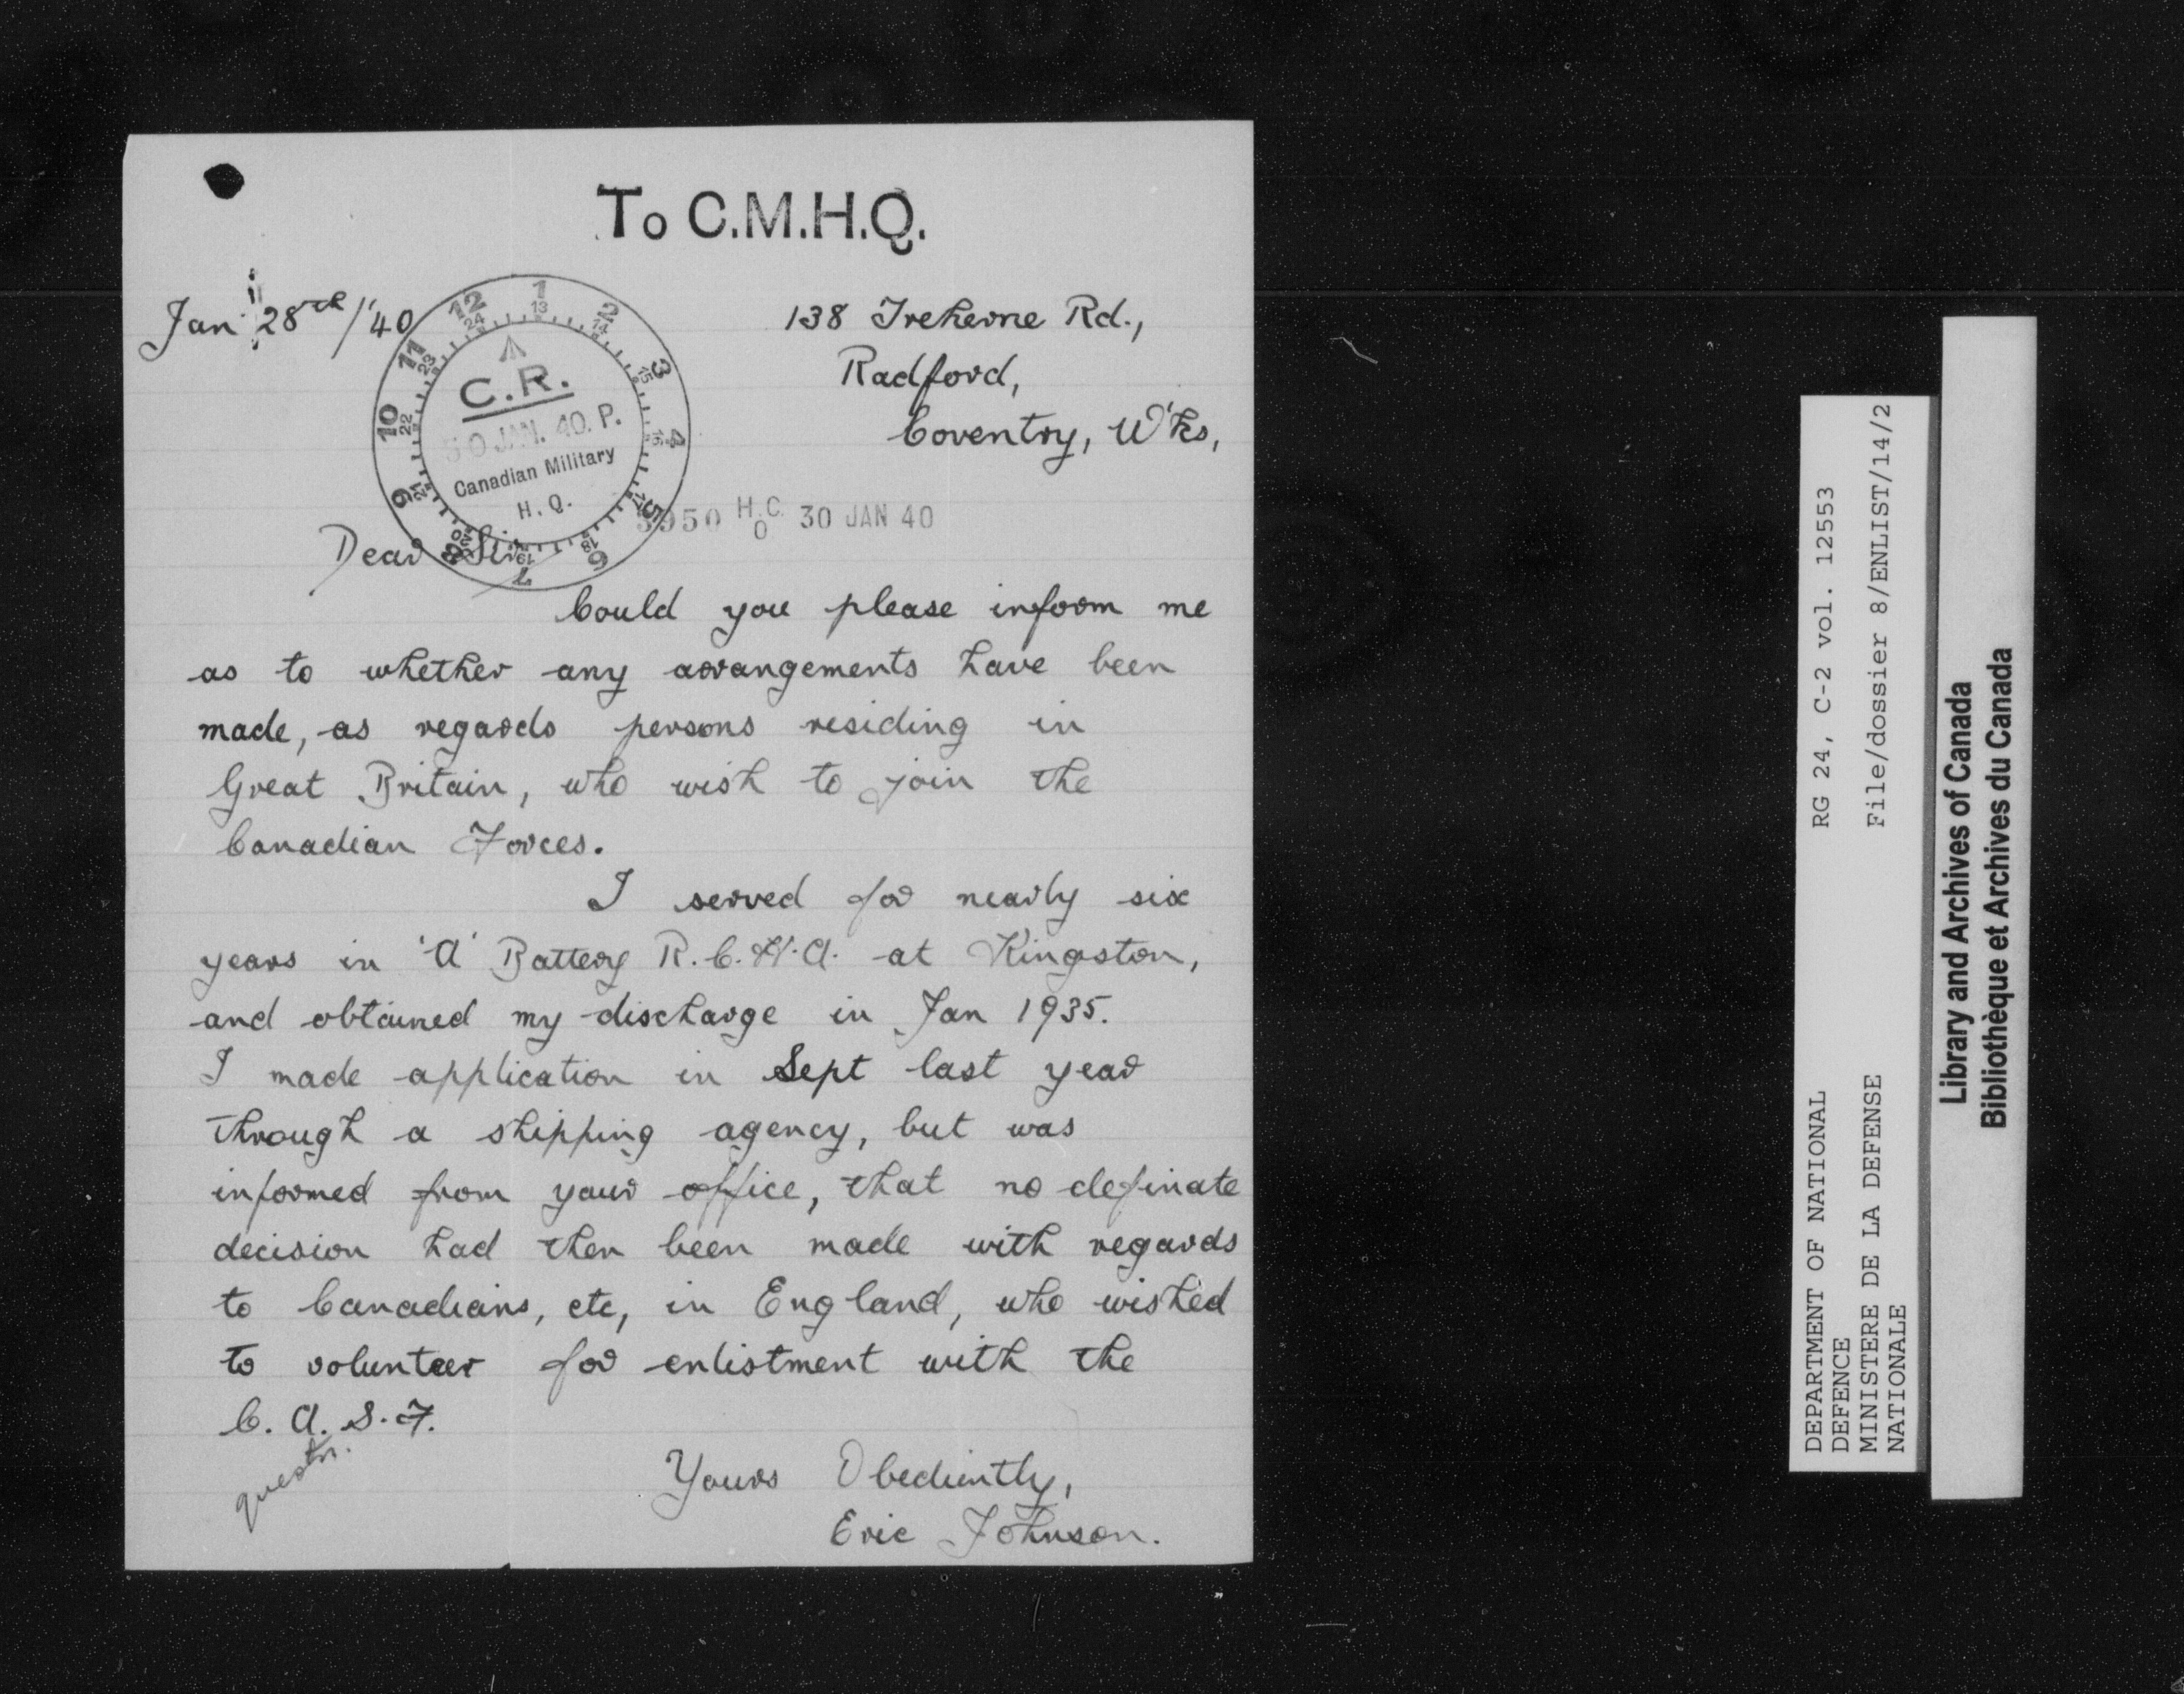 To C.M.H.Q.
Jan 28th/40
138 Treherne Rd.,
Radford,
Coventry, W'ks,
12 1 2 3 4 5 6 7 8 9 10 11
24 13 14 15 16 17 18 19 20 21 22 23
C.R.
30 JAN. 40. P.
Canadian Military
H.Q.
3950 H.C. 30 JAN 40
0
Dear Sir,
Could you please inform me
as to whether any arrangements have been
made, as regards persons residing in
Great Britain, who wish to join the
Canadian Forces.
I served for nearly six
years in 'A' Battery R.C.H.A. at Kingston,
and obtained my discharge in Jan 1935.
I made application in Sept last year
through a shipping agency, but was
informed from your office, that no definate
decision had then been made with regards
to Canadians, etc, in England, who wished
to volunteer for enlistment with the
C.A.S.F.
questn.
Yours Obediently,
Eric Johnson.
DEPARTMENT OF NATIONAL
DEFENCE
MINISTERE DE LA DEFENSE
NATIONALE
RG 24, C-2 vol. 12553
File/dossier 8/ENLIST/14/2
Library and Archives of Canada
Bibliothèque et Archives du Canada